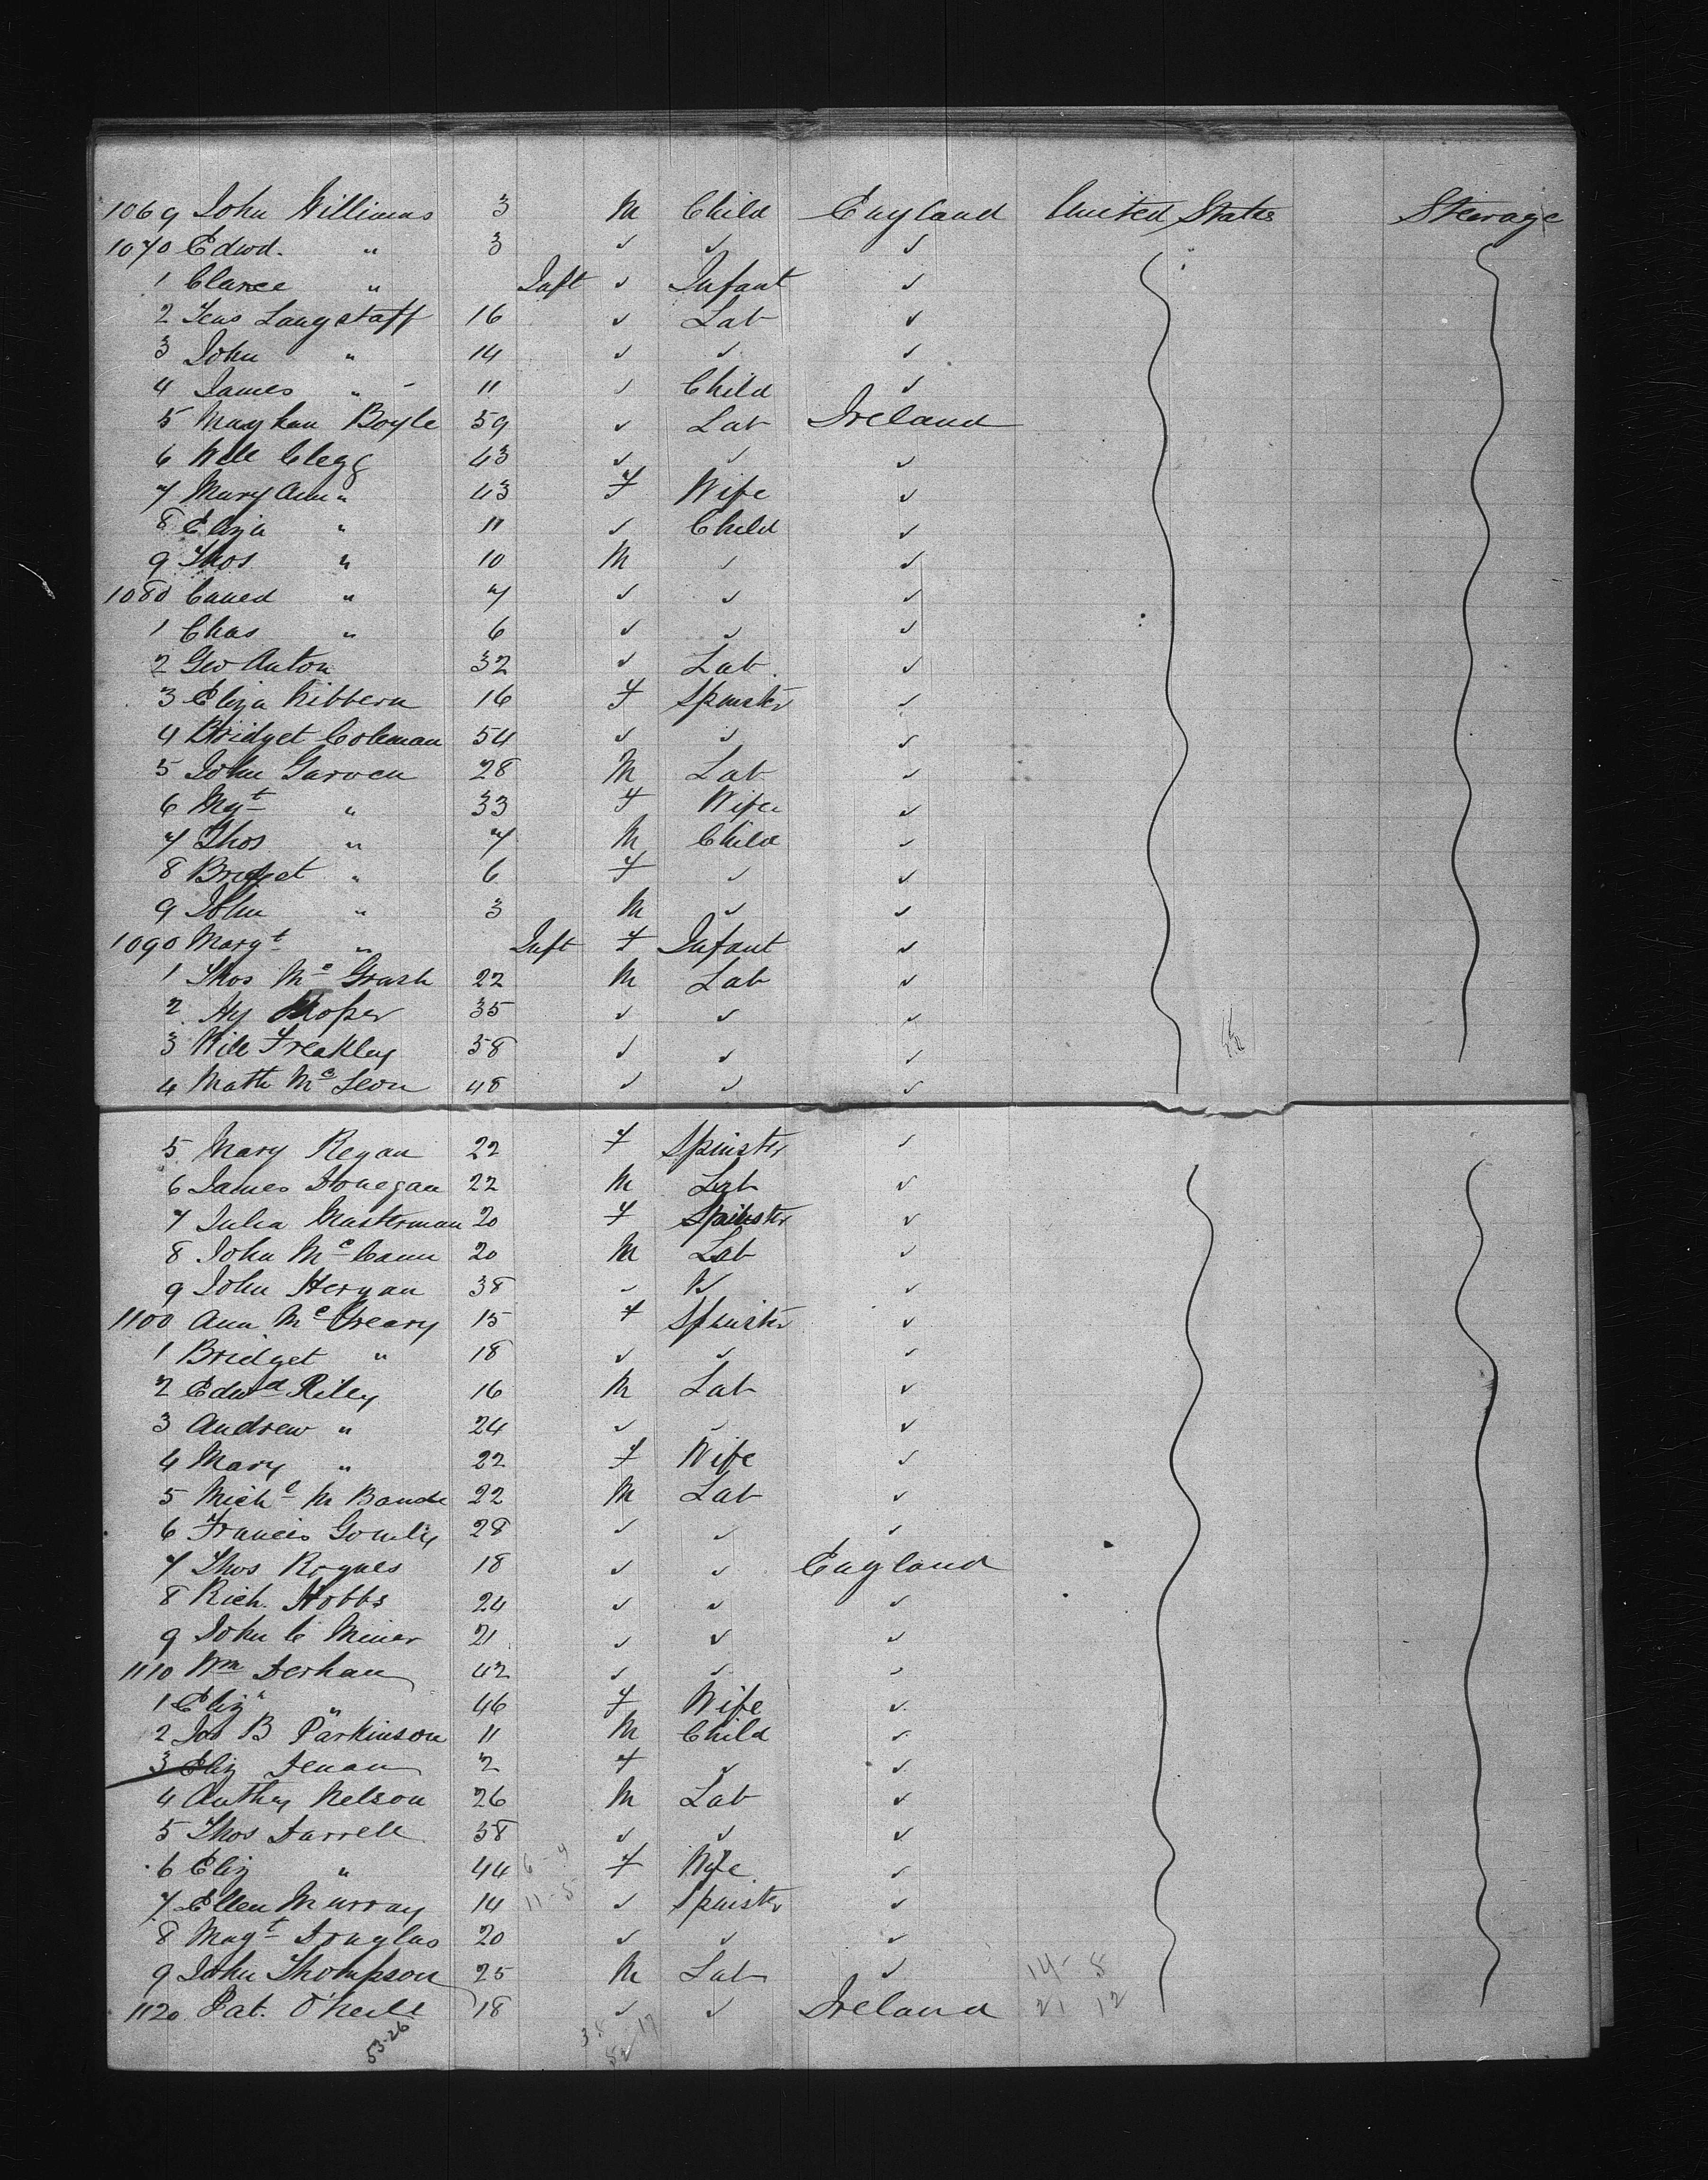 1069 John Williams 3 M Child England United States Steerage
1070 Edwd. " 3 ✓ ✓ ✓
1 Clarce " Inft ✓ Infant ✓
2 Langstaff 16 ✓ Lab ✓
3 John " 14 ✓ ✓ ✓
4 James " 11 ✓ Child ✓
5 Boyle 59 ✓ Lab Ireland
6 Will Clegg 43 ✓ ✓ ✓
7 Mary Ann " 43 F Wife ✓
8 Eliza " 11 ✓ Child ✓
9 Thos " 10 M ✓ ✓
1080 " 7 ✓ ✓ ✓
1 Chas " 6 ✓ ✓ ✓
2 Geo Anton 32 ✓ Lab ✓
3 Eliza Kibbern 16 F Spinster ✓
4 Bridget Coleman 54 ✓ ✓ ✓
5 John Garven 28 M Lab ✓
6 Mgt " 33 F Wife ✓
7 Thos " 7 M Child ✓
8 Bridget " 6 F ✓ ✓
9 John " 3 M ✓ ✓
1090 Margt " Inft F Infant ✓
1 Thos Mc Grash 22 M Lab ✓
2 Hy 35 ✓ ✓ ✓
3 Will Freakley 38 ✓ ✓ ✓
4 Math Mc Leon 48 ✓ ✓ ✓
5 Mary Regan 22 F Spinster ✓
6 James Donegan 22 M Lab ✓
7 Julia Masterman 20 F Spinster ✓
8 John Mc Cann 20 M Lab ✓
9 John Hergan 38 ✓ ✓ ✓
1100 Ann Mc Creary 15 F Spinster ✓
1 Bridget " 18 ✓ ✓ ✓
2 Edwd Riley 16 M Lab ✓
3 Andrew " 24 ✓ ✓ ✓
4 Mary " 22 F Wife ✓
5 Michl 22 M Lab ✓
6 Francis Gomly 28 ✓ ✓ ✓
7 Thos Roynes 18 ✓ ✓ England
8 Rich. Hobbs 24 ✓ ✓ ✓
9 John C Miner 21 ✓ ✓ ✓
1110 Wm Derham 42 ✓ ✓ ✓
1 Eliz " 46 F Wife ✓
2 B Parkinson 11 M Child ✓
3 Eliz Denan 2 F ✓ ✓
4 Anthy Nelson 26 M Lab ✓
5 Thos Darrell 38 ✓ ✓ ✓
6 Eliz " 44 F Wife ✓
7 Ellen Murray 14 11-5 ✓ Spinster ✓
8 Magt Douglas 20 ✓ ✓ ✓
9 John Thompson 25 M Lab ✓ 14-8
1120 Pat. O'Neill 18 ✓ ✓ Ireland 21 12
53-26